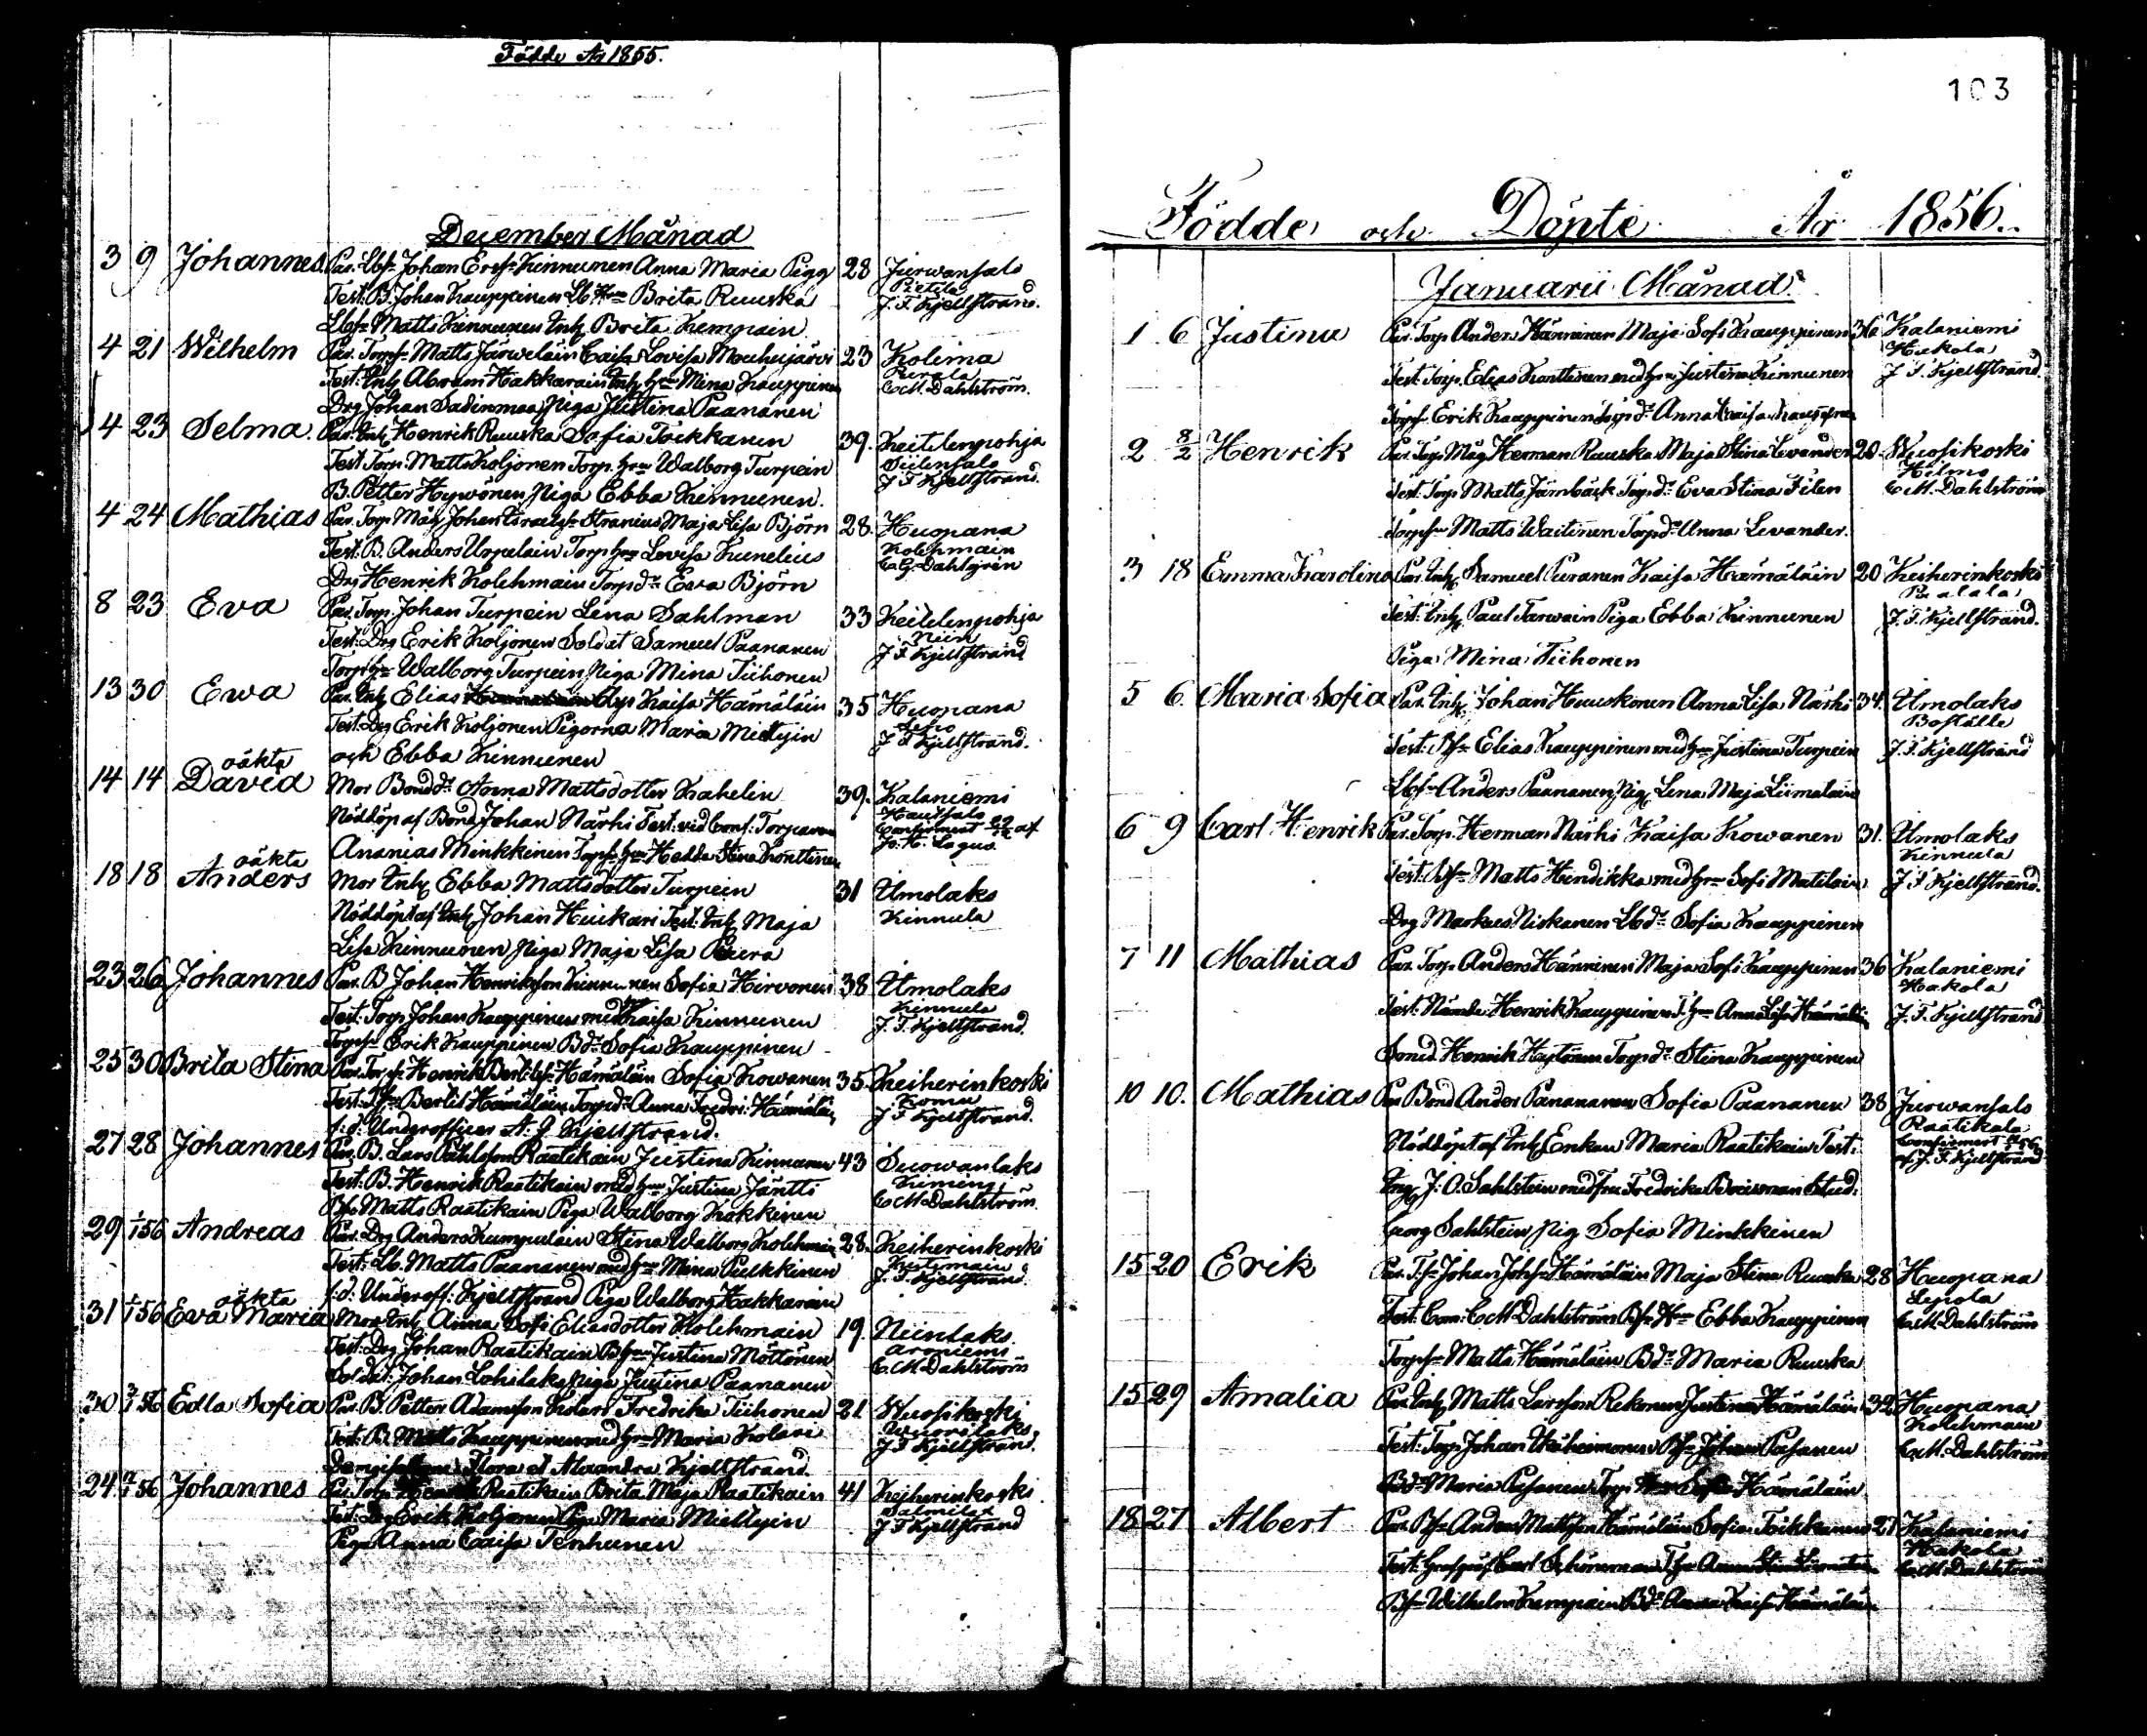 Födde År 1855.
December Månad
3 9 Johannes Par. Lbf. Johan Ersf. Kinnunen Anna Maria Pigg 28 Jurwansalo
Test: B. Johan Kauppinen Lb. Hru Brita Ruuska Pietela
Lbf. Matts Kinnunen Enk. Brita Kempain J. F. Kjellstrand.
4 21 Wilhelm Par. Torpf. Matts Järveläin Caisa Lovisa Mouhujärvi 23 Kolima
Test: Inh. Abram Hakkarain Inh. hru Mina Kauppinen Purala
Drg Johan Sadinmaa Piga Justina Paananen C.M. Dahlström.
4 23 Selma Par. Inh. Henrik Ruuska Sofia Toikkanen 39. Keitelenpohja
Test Torp. Matts Koljonen Torp. hru Walborg Turpein Wiilensalo
B. Petter Hyvönen Piga Ebba Kinnunen. J. F. Kjellstrand.
4 24 Mathias Par. Torp. Måg Johan Israelsf. Stranius Maja Lisa Björn 28. Huopana
Test. B. Anders Urpelain Torp. hru Lovisa Kunelius Kolehmain
Drg Henrik Kolehmain Torpdr Eva Björn C.G. Dahlgrén
8 23 Eva Par. Torp. Johan Turpein Lena Sahlman 33 Keitelenpohja
Test: Drg Erik Koljonen Soldat Samuel Paananen Nein
Torp hru Walborg Turpein Piga Mina Tiihonen J. F. Kjellstrand
13 30 Ewa Par. Inh. Elias Kaisa Hämäläin 35 Huopana
Test: Drg Erik Koljonen Pigorna Maria Mietyin
och Ebba Kinnunen J. F. Kjellstrand.
14 14 oäkta David Mor Bonddr Anna Mattsdotter Kahelin 39. Kalaniemi
Nöddöp af Bond Johan Närhi Test. vid Conf. Torparen Hautsalo
Ananias Minkkinen Torp. hru Hedda Stina Konttinen Confirmerat af Jo. H. Lagus
18 18 oäkta Anders Mor Inh. Ebba Mattsdotter Turpein 31 Umolaks
Nöddöpt af Inh. Johan Huikari Test. Inh. Maja Kinnula
Lisa Kinnunen Piga Maja Lisa Puera
23 26 Johannes Par. B. Johan Henriksson Kinnunen Sofia Hirvonen 38 Umolaks
Test: Torp. Johan Kauppinen med Kaisa Kinnunen Kinnula
Torpf. Erik Kauppinen Bdr Sofia Kauppinen J. F. Kjellstrand.
25 30 Brita Stina Par. Torpf. Henrik Bertilsf. Hämäläin Sofia Kowanen 35. Keiherinkoski
Test: Bertil Hämäläin Torpdr Anna Fredri. Hämäläin Komu
f. d. Underofficer A. G. Kjellstrand. J. F. Kjellstrand.
27 28 Johannes Par. B. Lars Pålsson Raatikain Justina Kinnunen 43 Suowanlaks
Test: B. Henrik Raatikain med hru Justina Jäntti Kiming
Bf. Matts Raatikain Piga Walborg Kokkinen C M Dahlström.
29 1/1 56 Andreas Par. Drg Anders Kumpulain Stina Walborg Kolehmain 28. Keiherinkoski
Test: Lb. Matts Paananen med hru Mina Pulkkinen Kustimain
f. d. Underoff. Kjellstrand Piga Walborg Hakkarain J. F. Kjellstrand.
31 1/1 56 oäkta Eva Maria Mor Inh. Anna Sofi Eliasdotter Kolehmain 19. Niinilaks
Test: Drg Johan Raatikain B. hru Justina Möttönen Aroniemi
Soldat. Johan Lohilaks Piga Justina Paananen C. M. Dahlström
30 56 Edla Sofia Par. B. Petter Adamsson Kolari Fredrika Tiihonen 21. Wuosikoski
Test: B. Matts Kauppinen med hru Maria Kolari Wuorilaks
Flora et Alexandra Kjellstrand. J F Kjellstrand.
24 56 Johannes Par. Torp. Henrik Raatikain Brita Maja Raatikain 41 Keiherinkoski
Test: Drg Erik Koljonen Piga Maria Mietyin Salmela
Piga Anna Caisa Tenhunen J F Kjellstrand
103
Födde och Döpte År 1856.
Januarii Månad
1 6 Justina Par. Torp. Anders Hänninen Maja Sofi Kauppinen 36 Kalaniemi
Test: Torp. Elias Konttinen med hru Justina Kinnunen Hakola
Torpf. Erik Kauppinen Torpdr Anna Caisa Kauppinen J. F. Kjellstrand.
2 8/2 Henrik Par. Torp. Måg Herman Ruuska Maja Stina Levander 20. Wuosikoski
Test. Torp. Matts Jämbäck Torpdr Eva Stina Filen Hilmo
Torpf. Matts Waitinen Torpdr Anna Levander. C.M. Dahlström
3 18 Emma Karolina Par. Inh. Samuel Puranen Kaisa Hämäläin 20 Keiherinkoski
Test: Inh. Paul Tarwain Piga Ebba Kinnunen
Piga Mina Tiihonen J. F. Kjellstrand.
5 6. Maria Sofia Par. Inh. Johan Huuskonen Anna Lisa Närhi 34. Umolaks
Test: Bf. Elias Kauppinen med hru Justina Turpein Boställe
Lbf. Anders Paananen Pig. Lena Maja Liimatain J. F. Kjellstrand
6 9 Carl Henrik Par. Torp. Herman Närhi Kaisa Kowanen 31. Umolaks
Test: Bf. Matts Hindikka med hru Sofi Matilain Kinnula
Drg Markus Niskanen Lbdr Sofia Kauppinen J. F Kjellstrand.
7 11 Mathias Par. Torp. Anders Hänninen Maja Sofi Kauppinen 36 Kalaniemi
Test: Nämde. Henrik Kauppinen T. hru Anna Lisa Hämäläin Hakola
Henrik Hytönen Torpdr Stina Kauppinen J. F. Kjellstrand
10 10. Mathias Par Bond Ander Pananen Sofia Paananen 38 Jurwansalo
Nöddöpt af Inh. Enkan Maria Raatikain Test: Raatikala
Ing. J. O. Sahlstein med fru Fredrika Boisman Stud: Confirmerat af J. F. Kjellstrand
Georg Sahlstein Pig Sofia Minkkinen
15 20 Erik Par. Tf. Johan Johsf. Hämäläin Maja Stina Ruuska 28 Huopana
Test: C M Dahlström Bf. Hru Ebba Kauppinen Lepola
Torpf. Matts Hämäläin Bdr Maria Ruuska C.M. Dahlström
15 29 Amalia Par. Inh. Matts Larsson Rekonen Justina Hämäläin 32 Huopana
Test: Torp. Johan Bf. Johan Pasanen Kolehmain
Bdr Maria Pasanen Torp. Hru Sofia Hämäläin C.M. Dahlström
18 27 Albert Par. Bf. Anders Mattsson Hämäläin Sofia Toikkanen 27 Kalaniemi
Test: Carl Hakola
Bf. Wilhelm Kumpain Bdr Anna Kaisa Hämäläin C.M. Dahlström